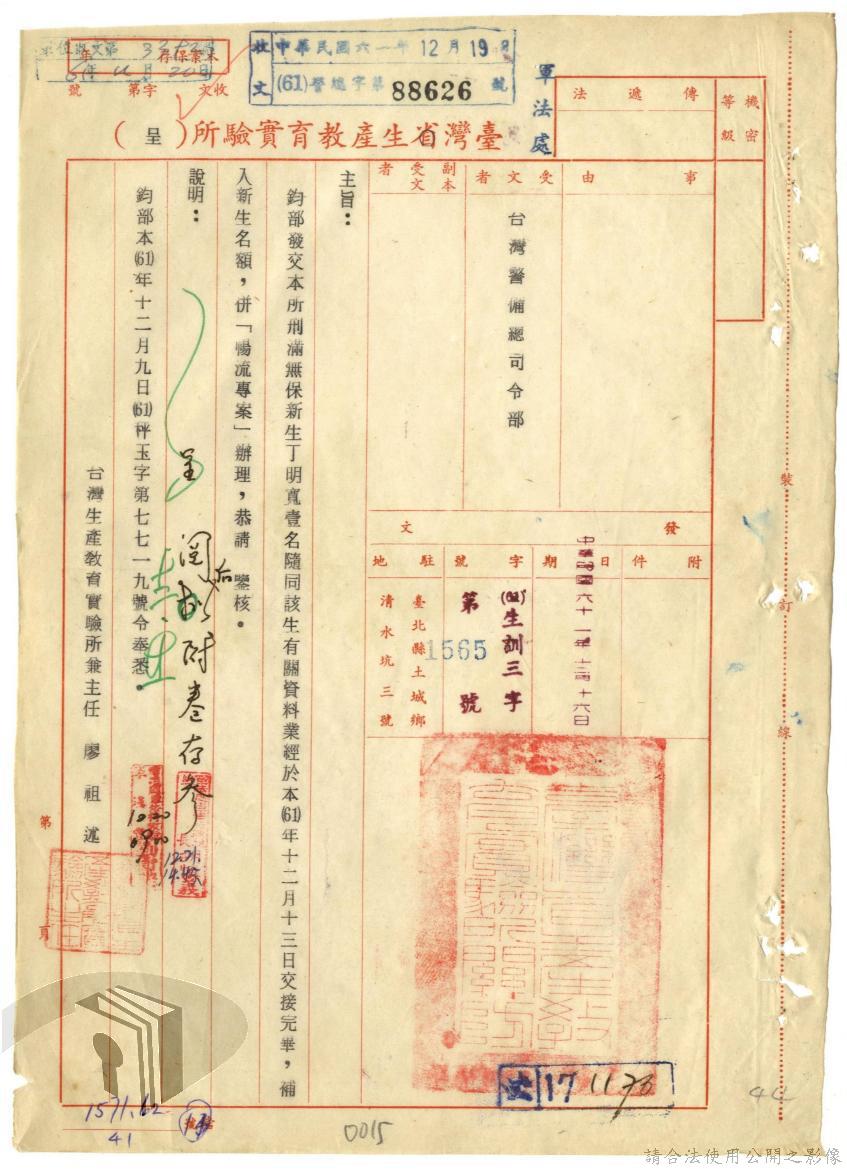 中華民國六一年12月19日
收文
(61)警總字第88626號
軍法處
本案保存 年
收文 字第 號
臺灣省生產教育實驗所(呈)
傳遞法
機密等級
事由
受文者
副本受文者
台灣警備總司令部
發文
附件
日期
中華民國六十一年十二月十六日
字號
(61)生訓三字
第1565號
駐地
臺北縣土城鄉
清水坑三號
主旨：
鈞部發交本所刑滿無保新生丁明寬壹名隨同該生有關資料業經於本(61)年十二月十三日交接完畢，補
入新生名額，併「暢流專案」辦理，恭請 鑒核。
說明：
鈞部本(61)年十二月九日(61)秤玉字第七七一九號令奉悉。
台灣生產教育實驗所兼主任 廖祖述
呈
閱後附卷存參
第 頁
裝
訂
線
17
1571.62
41
0015
44
請合法使用公開之影像